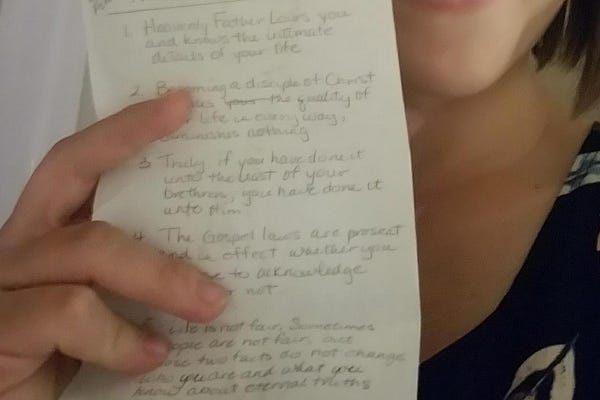 1. Heavenly Father Loves you
and knows the intimate
details of your life
2. Becoming a disciple of Christ
the quality of
life in every way,
diminishes nothing
3. Truly, if you have done it
unto the least of your
brethren, you have done it
unto Him
4. The Gospel laws are present
and in effect whether you
to acknowledge
or not
Life is not fair, Sometimes
people are not fair, but
those two facts do not change
who you are and what you
know about eternal truths